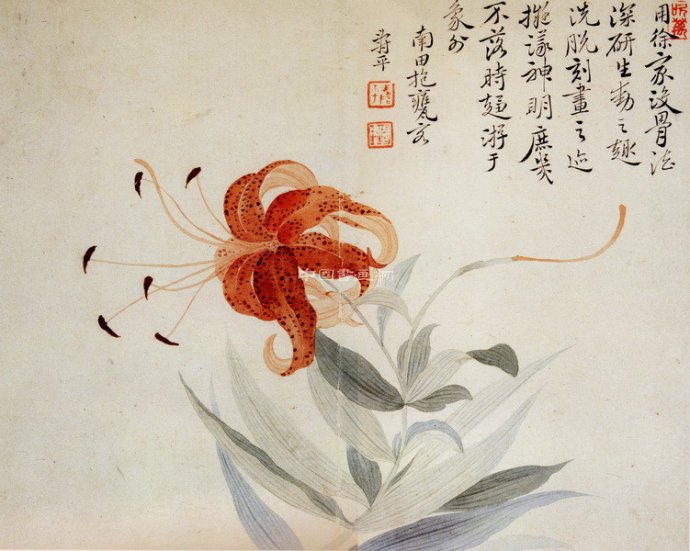 用徐家没骨法
深研生動之趣
洗脱刻畫之迹
擬議神明庶幾
不落時趨游于
象外
南田抱甕客
壽平
中國書畫網